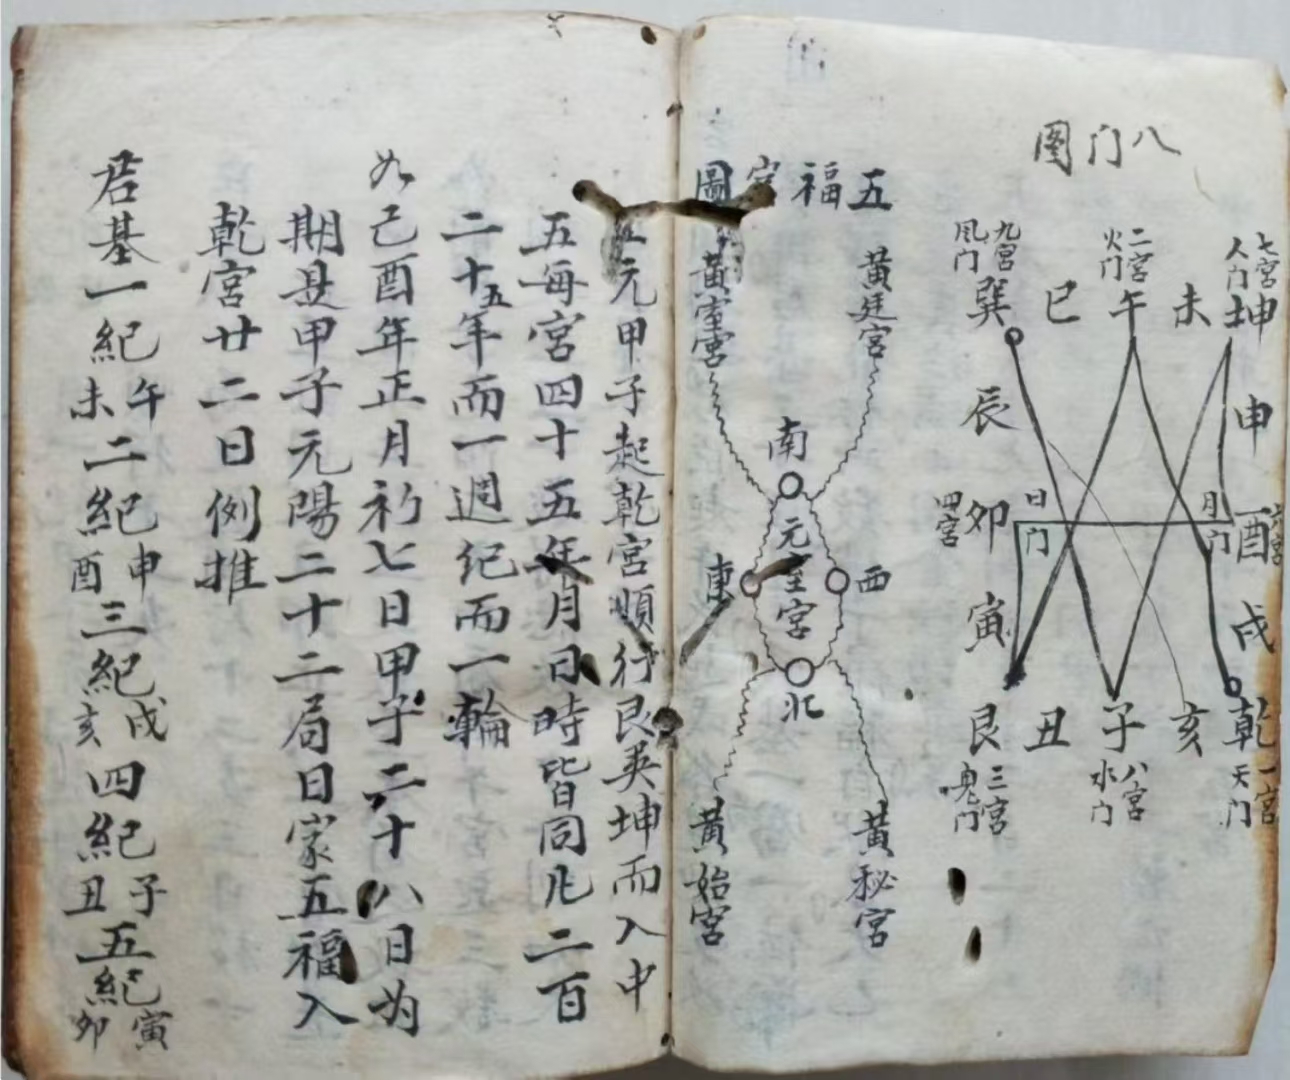 八门图
七宮
人门
坤
未
二宮
火门
午
巳
九宮
风门
巽
申
辰
六宮
酉
月门
日门
卯
四宮
戌
寅
乾
亥
子
丑
艮
一宮
天门
八宮
水门
三宮
鬼门
五福宮圖
黃廷宮
黃室宮
南
西
元室宮
東
北
黃秘宮
黃始宮
元甲子起乾宮順行艮巽坤而入中
五每宮四十五年月日時皆同凡二百
二十五年而一週纪而一輪
如己酉年正月初七日甲子二十八日为
期是甲子元陽二十二局日家五福入
乾宮廿二日例推
君基一紀午未二紀申酉三紀戌亥四紀子丑五紀寅卯